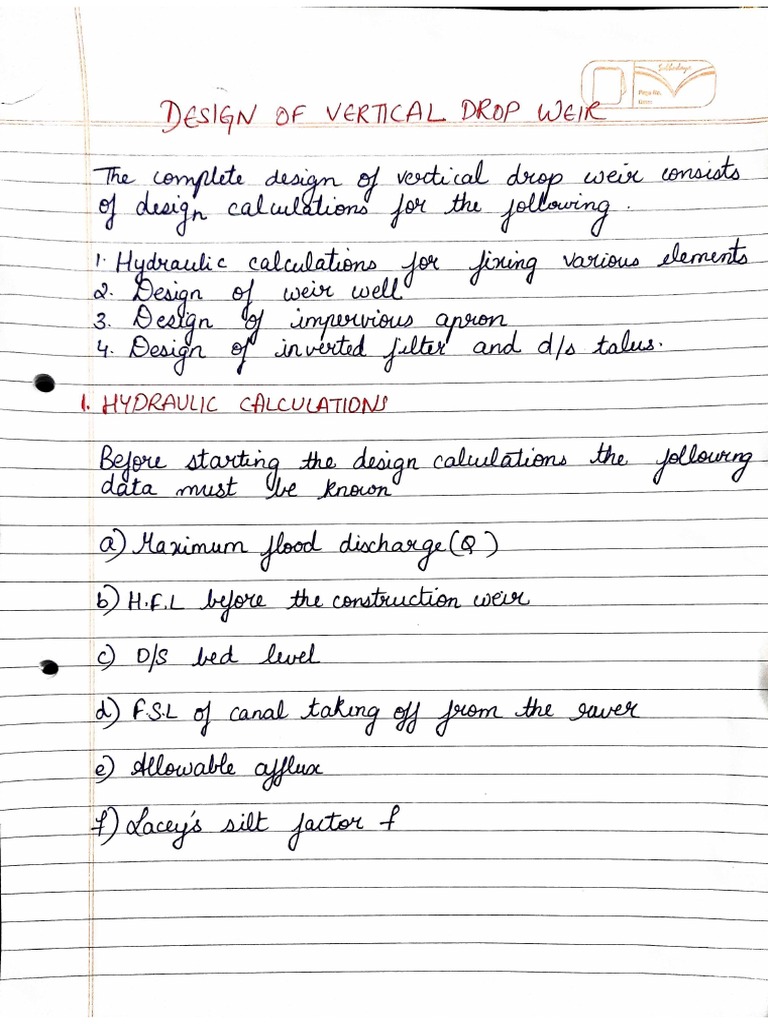 DESIGN OF VERTICAL DROP WEIR
The complete design of vertical drop weir consists
of design calculations for the following.
1. Hydraulic calculations for fixing various elements
2. Design of weir well
3. Design of impervious apron
4. Design of inverted filter and d/s talus.
1. HYDRAULIC CALCULATIONS
Before starting the design calculations the following
data must be known
a) Maximum flood discharge (Q)
b) H.F.L before the construction weir
c) D/S bed level
d) F.S.L of canal taking off from the river
e) Allowable afflux
f) Lacey's silt factor f